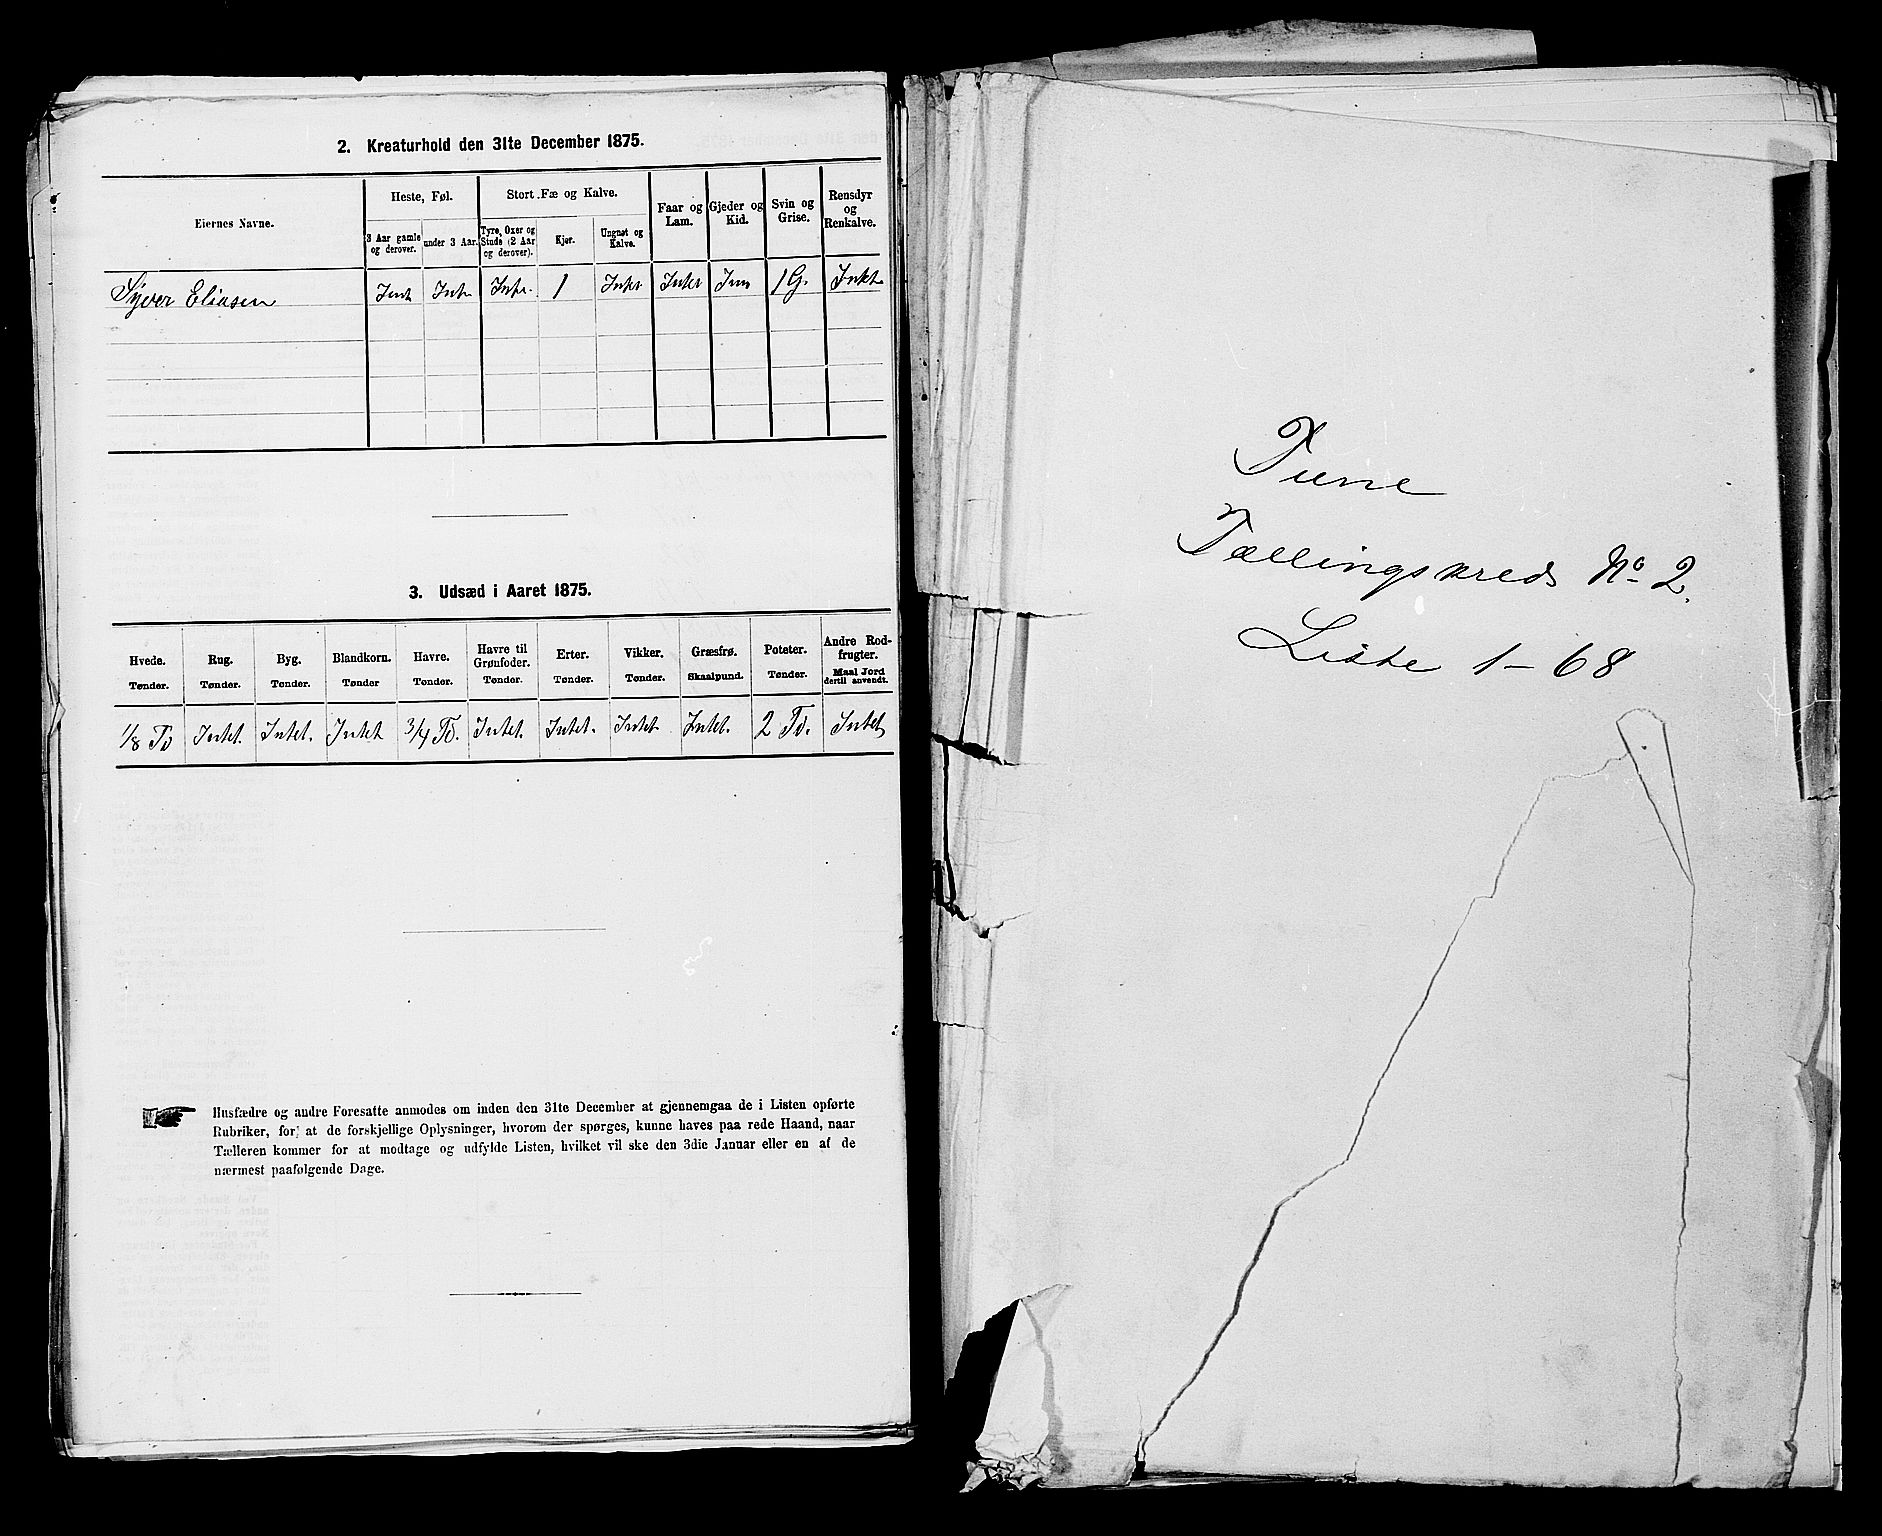 2. Kreaturhold den 31te December 1875.
Eiernes Navne.
Heste, Føl.
3 Aar gamle og derover.
under 3 Aar.
Stort Fæ og Kalve.
Tyre, Oxer og Stude (2 Aar og derover).
Kjør.
Ungnøt og Kalve.
Faar og Lam.
Gjeder og Kid.
Svin og Grise.
Rensdyr og Renkalve.
Syver Eliasen Int. Int. 1 1 G. Intet
3. Udsæd i Aaret 1875.
Hvede. Tønder.
Rug. Tønder.
Byg. Tønder.
Blandkorn. Tønder
Havre. Tønder.
Havre til Grønfoder. Tønder.
Erter. Tønder.
Vikker. Tønder.
Græsfrø. Skaalpund.
Poteter. Tønder.
Andre Rodfrugter. Maal Jord dertil anvendt.
1/8 Td Intet. Intet. Intet 3/4 Td. Intet. Intet. Intet. Intet. 2 Td. Intet
Husfædre og andre Foresatte anmodes om inden den 31te December at gjennemgaa de i Listen opførte
Rubriker, for at de forskjellige Oplysninger, hvorom der spørges, kunne haves paa rede Haand, naar
Tælleren kommer for at modtage og udfylde Listen, hvilket vil ske den 3die Januar eller en af de
nærmest paafølgende Dage.
Tune
Tællingskreds No 2.
Liste 1–68